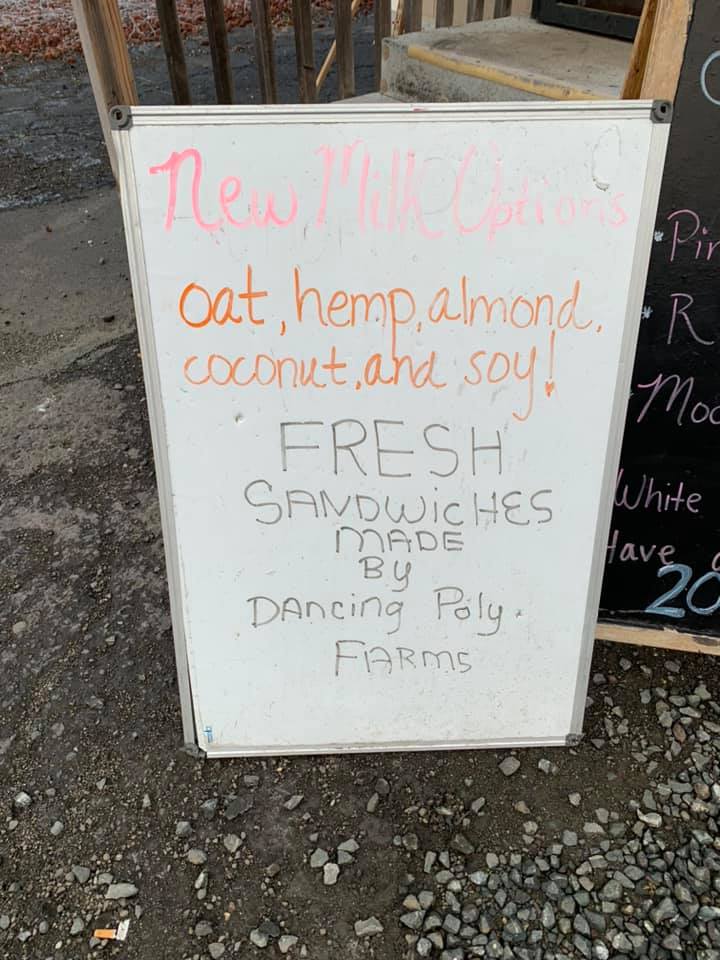 New Milk Options
oat, hemp, almond,
coconut, and soy!
FRESH
SANDWICHES
MADE
BY
DAncing Poly
FARMS
R
White
Have
20